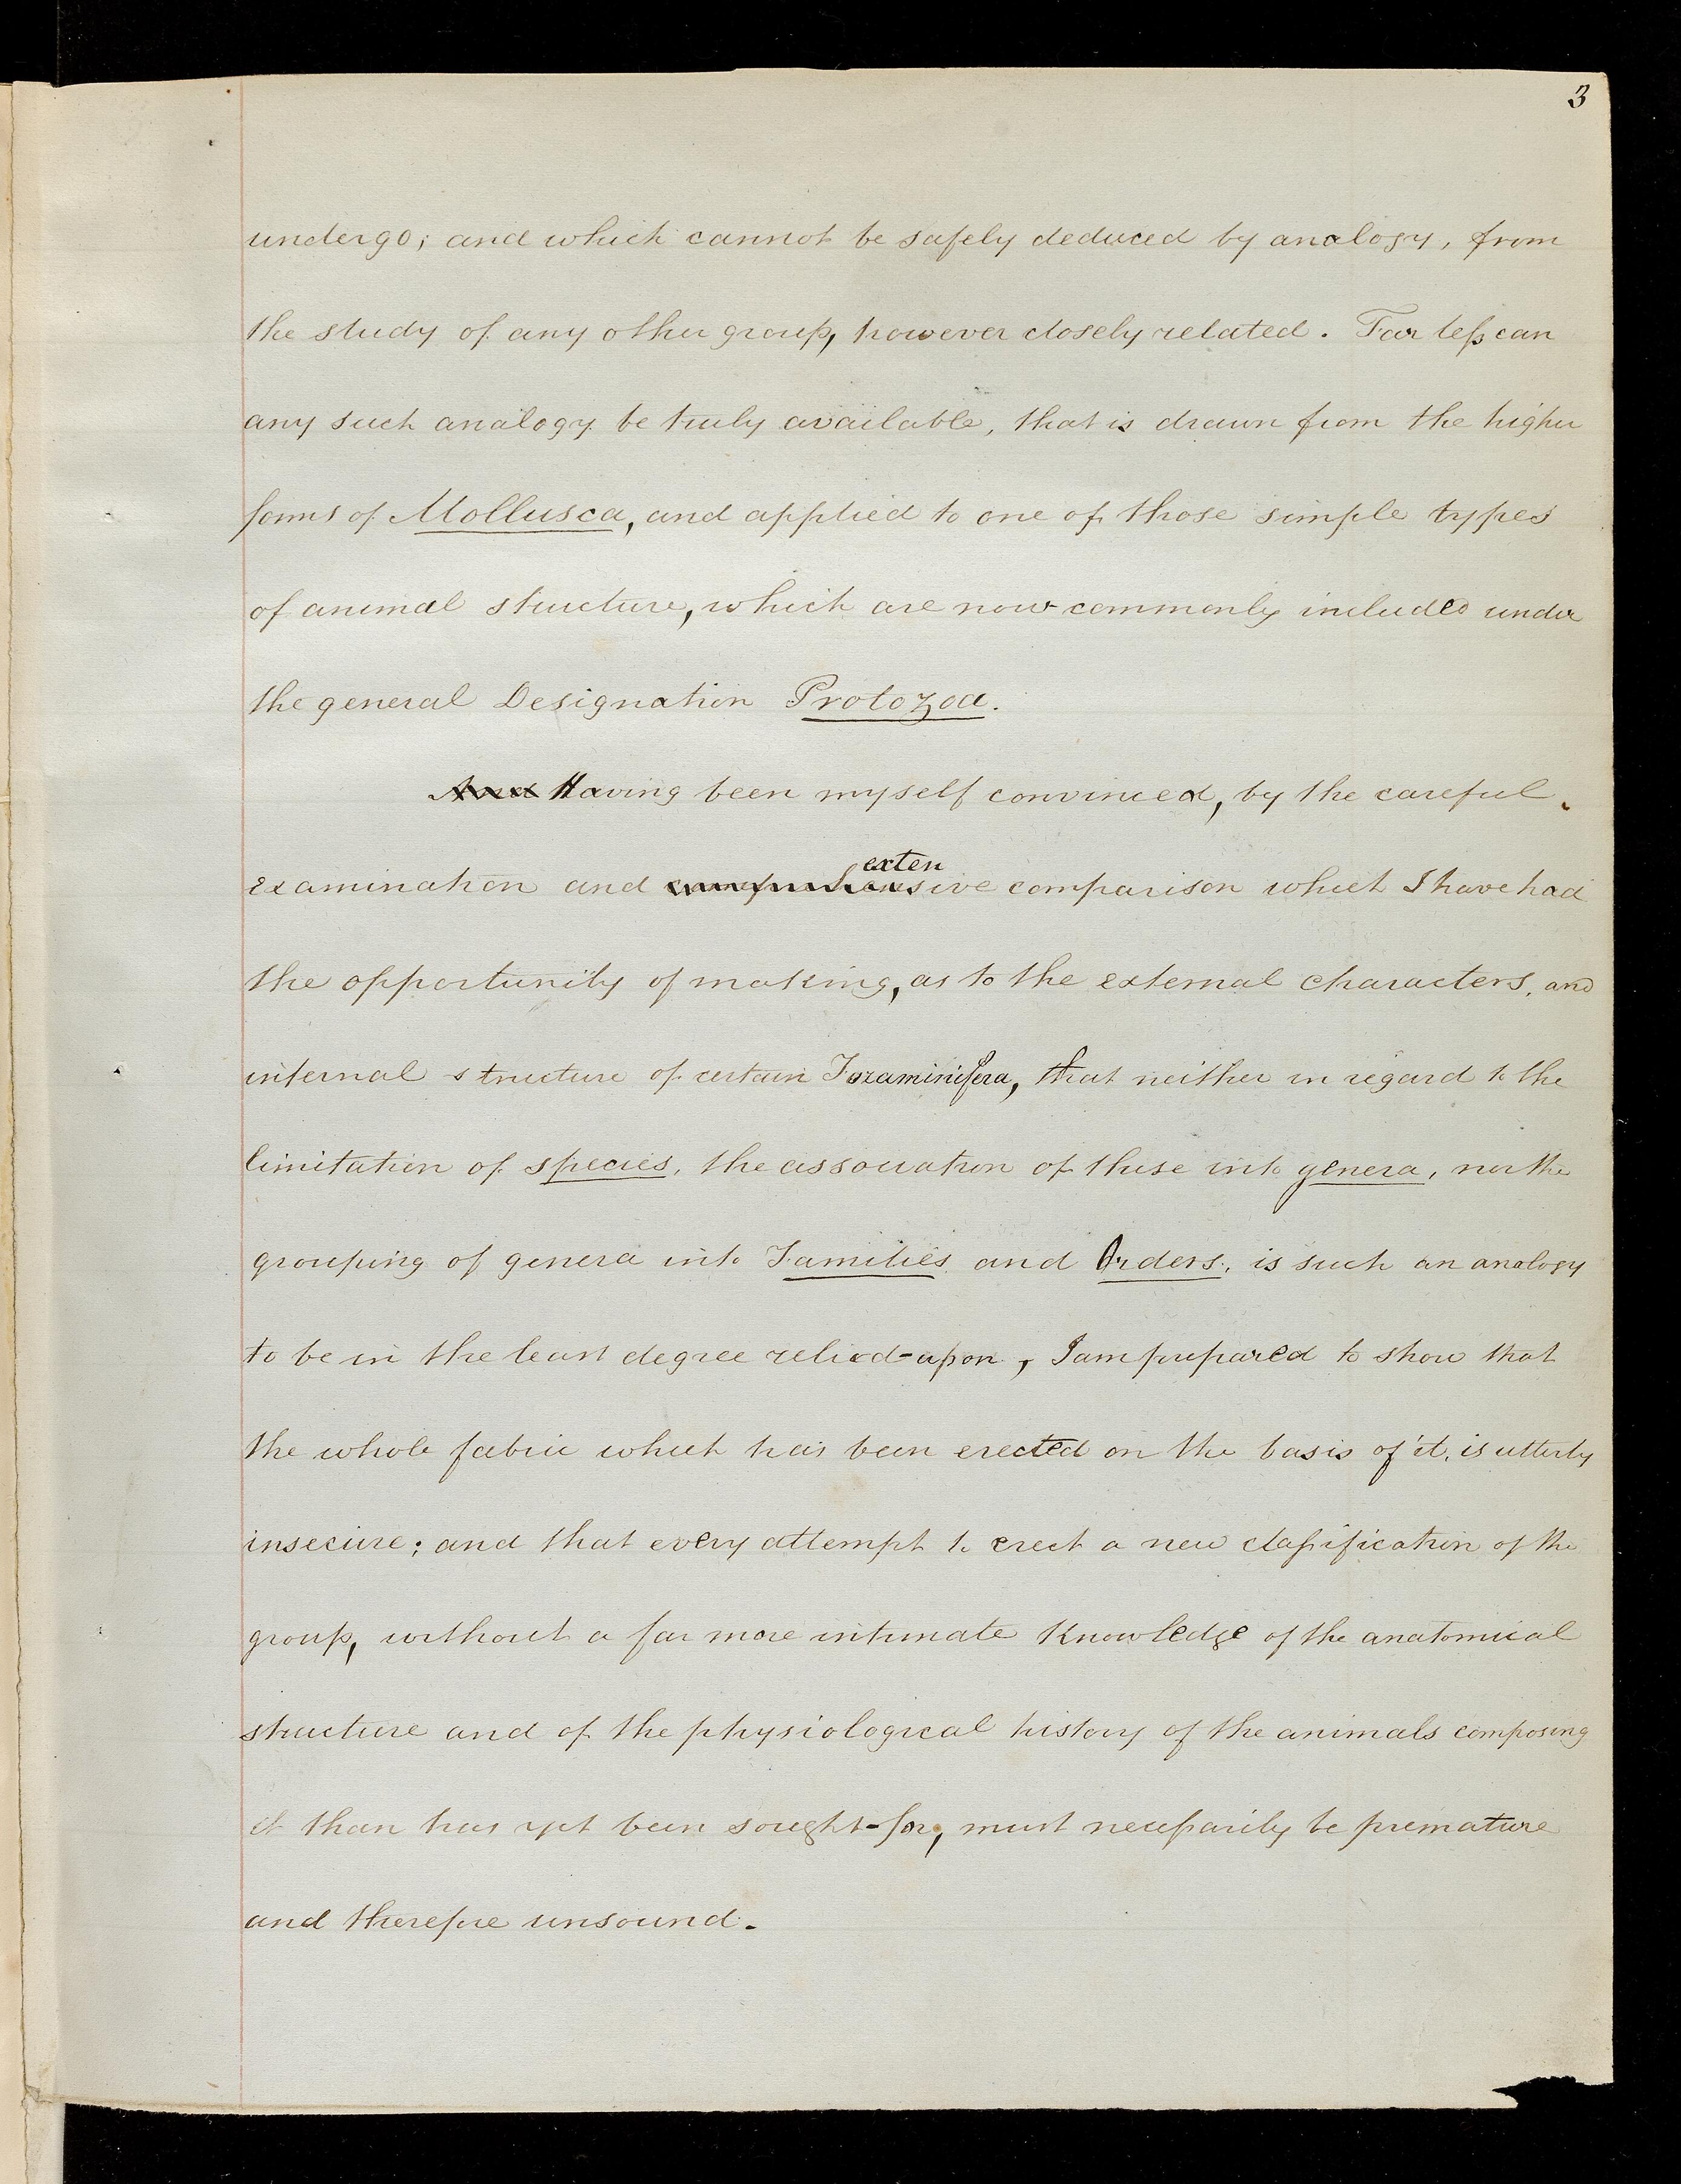 3
undergo; and which cannot be safely deduced by analogy, from
the study of any other group, however closely related. Far less can
any such analogy be truly available, that is drawn from the higher
forms of Mollusca, and applied to one of those simple types
of animal structure, which are now commonly included under
the general Designation Protozoa.
And Having been myself convinced, by the careful
exten
examination and comprehensive comparison which I have had
the opportunity of making, as to the external characters, and
internal structure of certain Foraminifera, that neither in regard to the
limitation of species, the association of these into genera, nor the
grouping of genera into Families and Orders, is such an analogy
to be in the least degree relied-upon, I am prepared to show that
the whole fabric which has been erected on the basis of it, is utterly
insecure; and that every attempt to erect a new classification of the
group, without a far more intimate Knowledge of the anatomical
structure and of the physiological history of the animals composing
it than has yet been sought-for, must necessarily be premature
and therefore unsound.